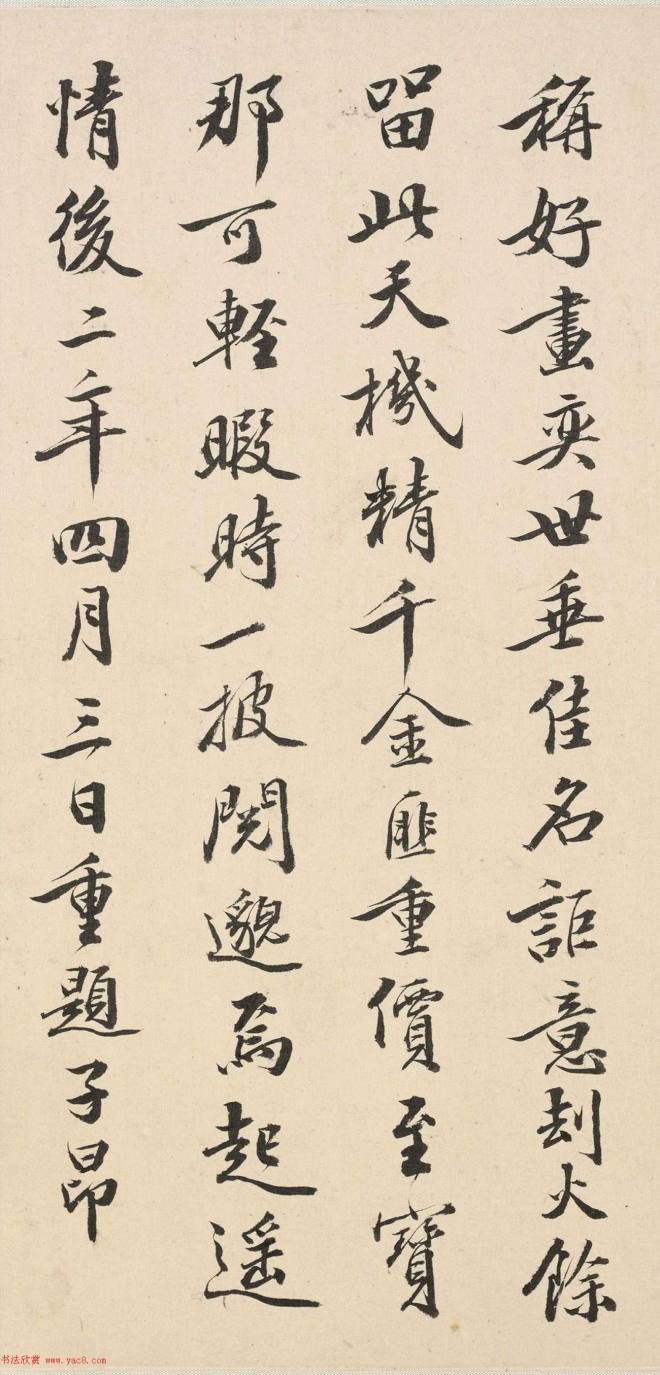 稱好畫奕世垂佳名詎意刼火餘
留此天機精千金匪重價至寶
那可輕暇時一披閱邈焉起遥
情後二年四月三日重題子昂
书法欣赏 www.yac8.com